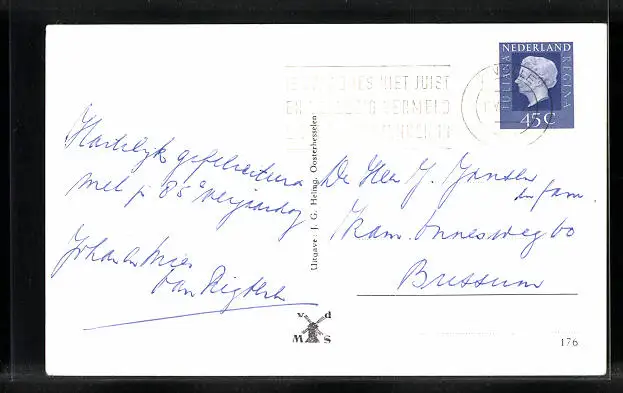 NEDERLAND
JULIANA REGINA
45 C
ADRES NIET JUIST
VERMELD
Hartelijk gefeliciteerd
met je 85e verjaardag
Johan en Mies
van Rigteren
Uitgave: J. G. Heling, Oosterhesselen
De Heer J. Jansen
en fam.
Kam. Onnesweg 60
Bussum
v d
M S
176